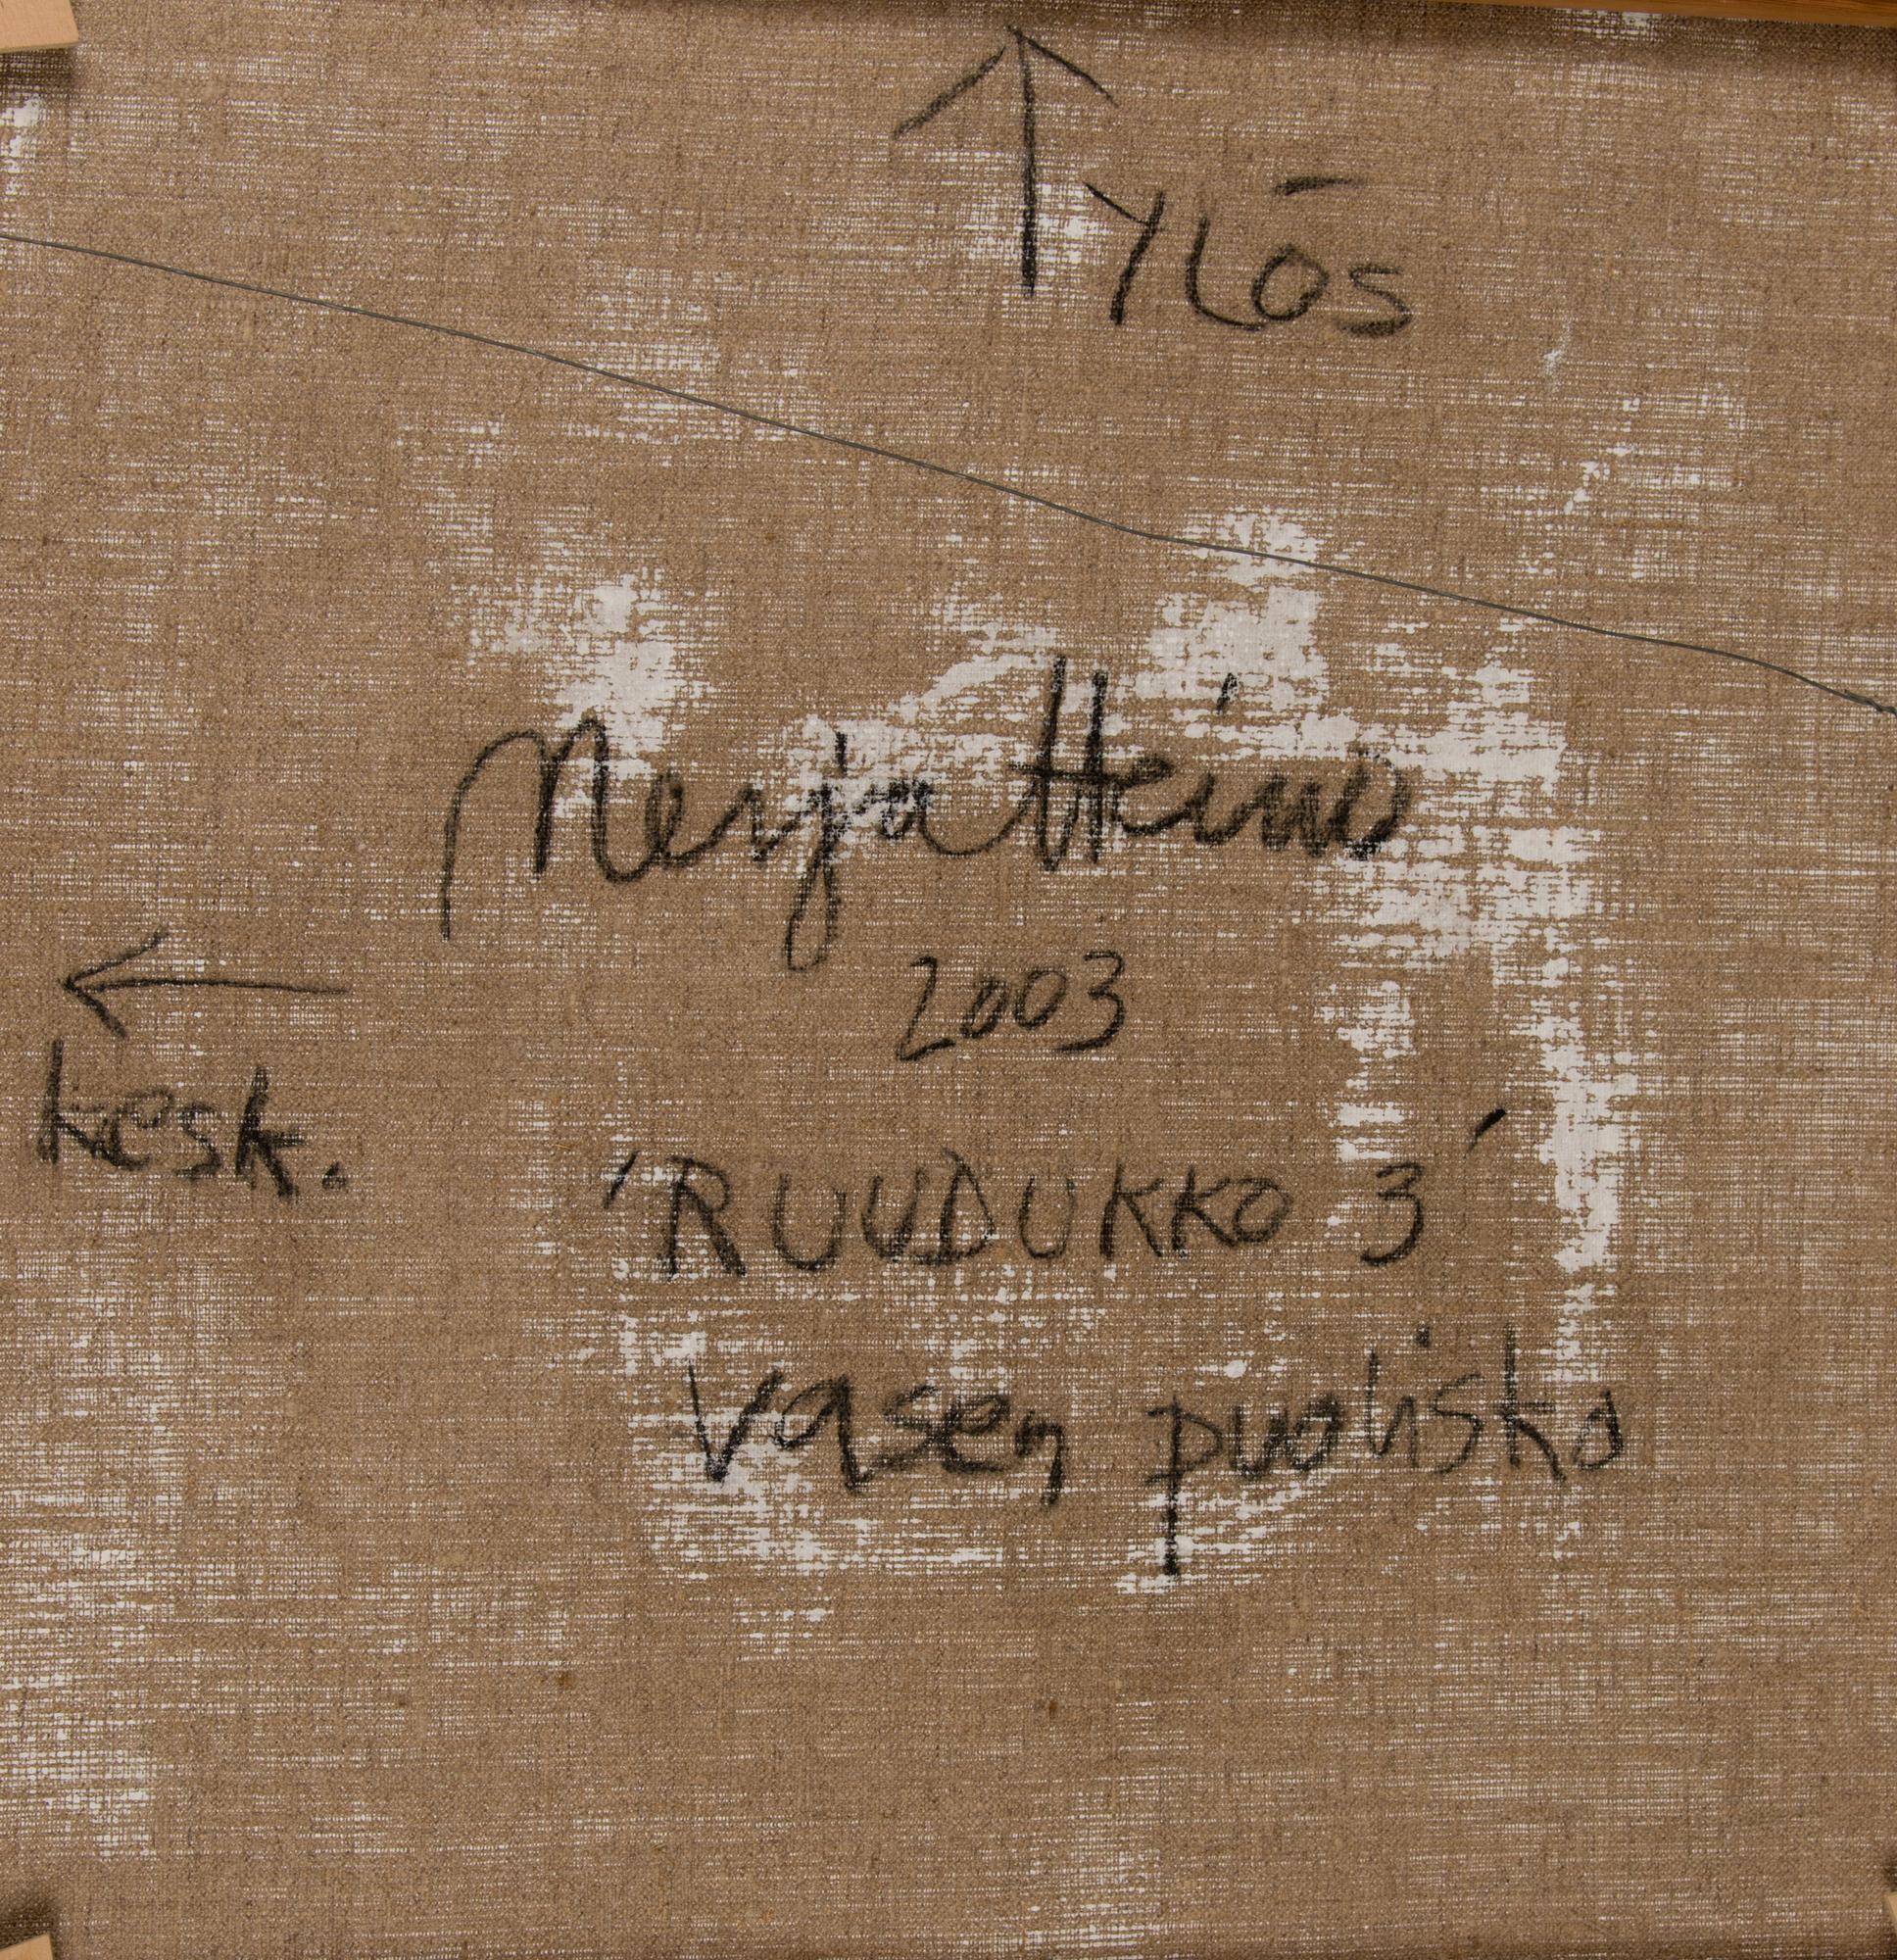 Ylös
Merja Heino
2003
kesk.
'RUUDUKKO 3'
vasen puolisko